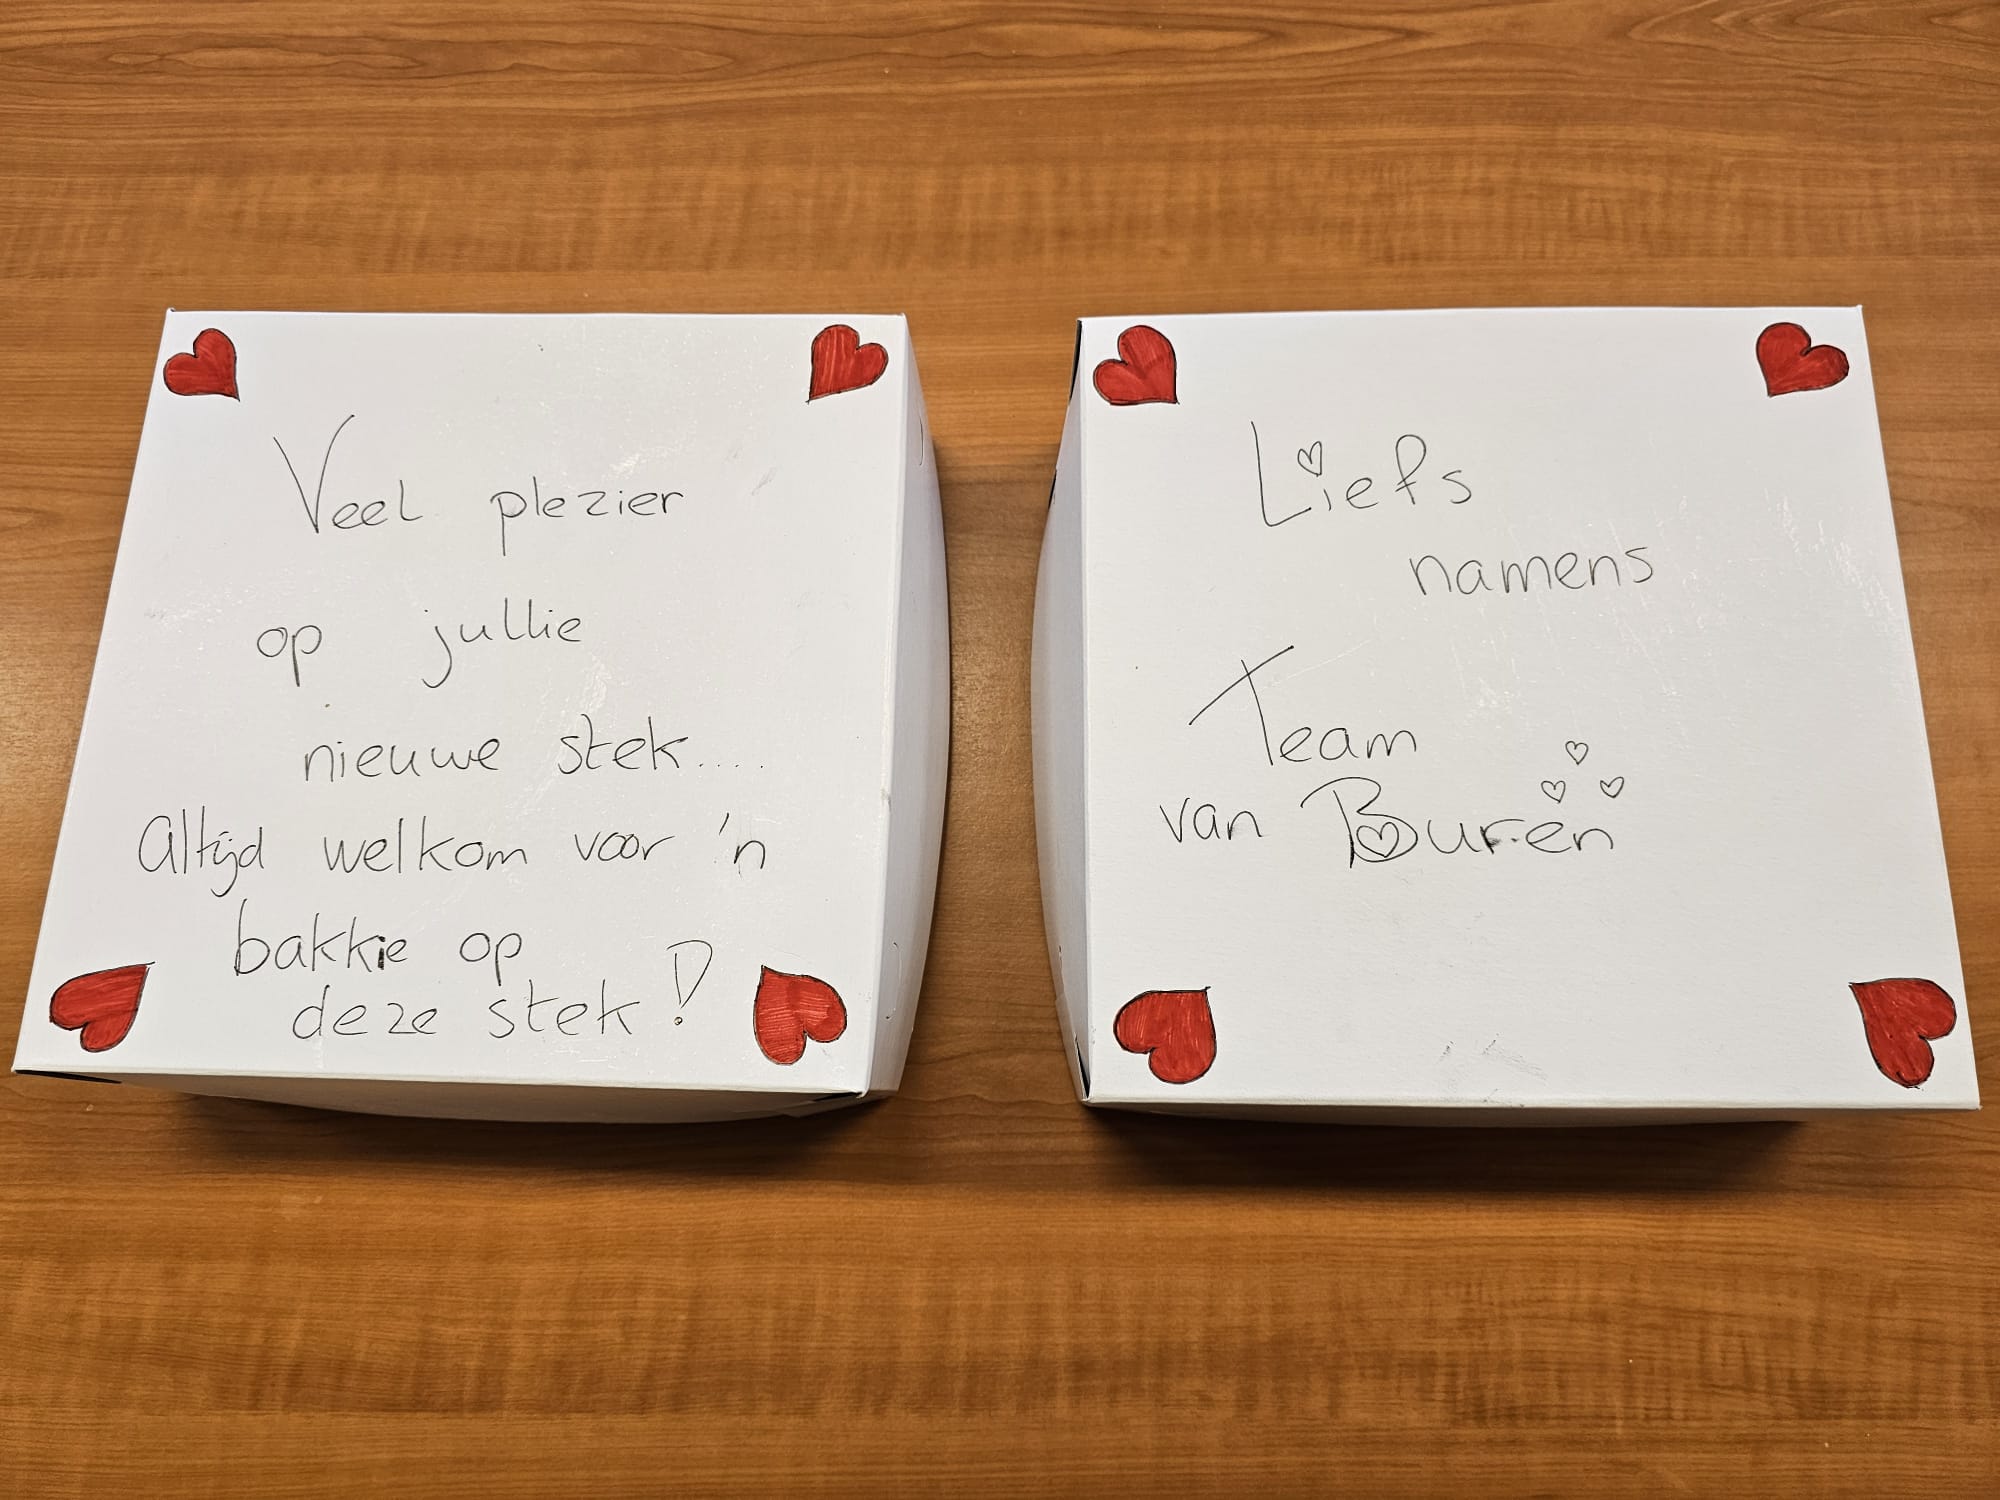 Veel plezier
op jullie
nieuwe stek....
Altijd welkom voor 'n
bakkie op
deze stek!
Liefs
namens
Team
van Buren